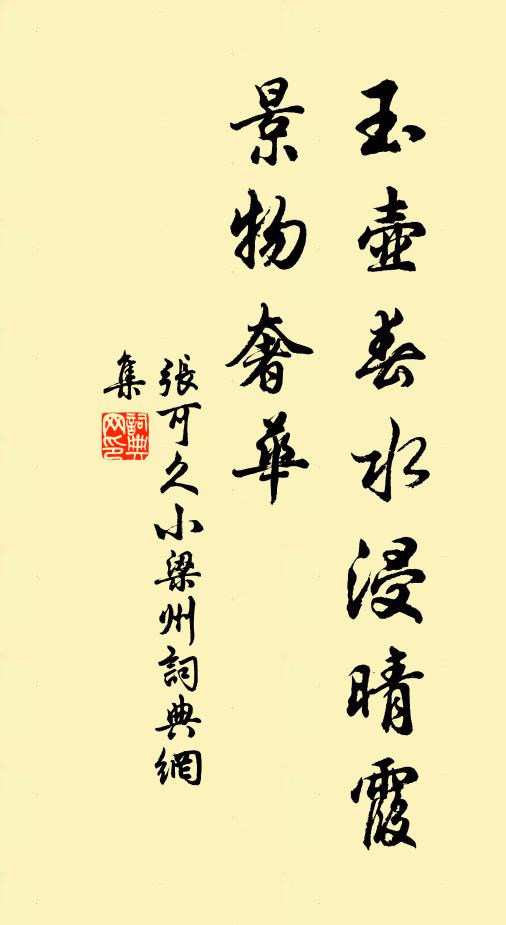 玉壺春水浸晴霞
景物奢華
張可久小梁州詞典網
集
詞典
网印